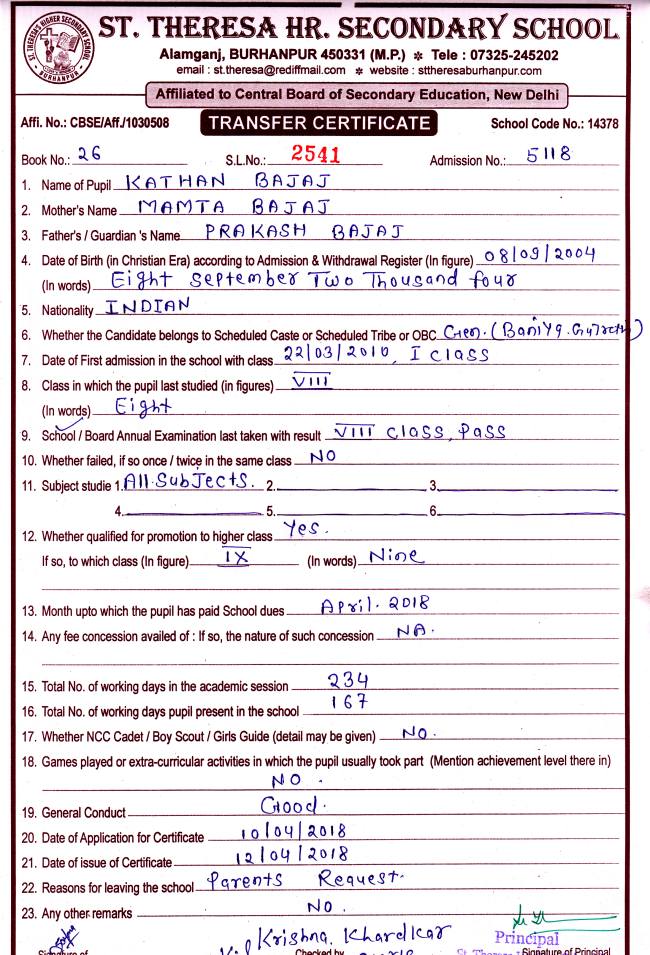 ST. THERESA HR. SECONDARY SCHOOL
ST. THERESA'S HIGHER SECONDARY SCHOOL
BURHANPUR
Alamganj, BURHANPUR 450331 (M.P.) * Tele : 07325-245202
email : st.theresa@rediffmail.com * website : sttheresaburhanpur.com
Affiliated to Central Board of Secondary Education, New Delhi
Affi. No.: CBSE/Aff./1030508 TRANSFER CERTIFICATE School Code No.: 14378
Book No.: 26 S.L.No.: 2541 Admission No.: 5118
1. Name of Pupil KATHAN BAJAJ
2. Mother's Name MAMTA BAJAJ
3. Father's / Guardian 's Name PRAKASH BAJAJ
4. Date of Birth (in Christian Era) according to Admission & Withdrawal Register (In figure) 08/09/2004
(In words) Eight September Two Thousand four
5. Nationality INDIAN
6. Whether the Candidate belongs to Scheduled Caste or Scheduled Tribe or OBC Gen. (Baniya.
7. Date of First admission in the school with class 22/03/2010, I class
8. Class in which the pupil last studied (in figures) VIII
(In words) Eight
9. School / Board Annual Examination last taken with result VIII class, pass
10. Whether failed, if so once / twice in the same class NO
11. Subject studie 1. All Subjects. 2. 3.
4. 5. 6.
12. Whether qualified for promotion to higher class Yes.
If so, to which class (In figure) IX (In words) Nine
13. Month upto which the pupil has paid School dues April. 2018
14. Any fee concession availed of : If so, the nature of such concession NA.
15. Total No. of working days in the academic session 234
16. Total No. of working days pupil present in the school 167
17. Whether NCC Cadet / Boy Scout / Girls Guide (detail may be given) NO.
18. Games played or extra-curricular activities in which the pupil usually took part (Mention achievement level there in)
NO.
19. General Conduct Good.
20. Date of Application for Certificate 10/04/2018
21. Date of issue of Certificate 12/04/2018
22. Reasons for leaving the school Parents Request.
23. Any other remarks NO.
Krishna Khardkar Principal
Signature of Checked by St. Theresa Signature of Principal